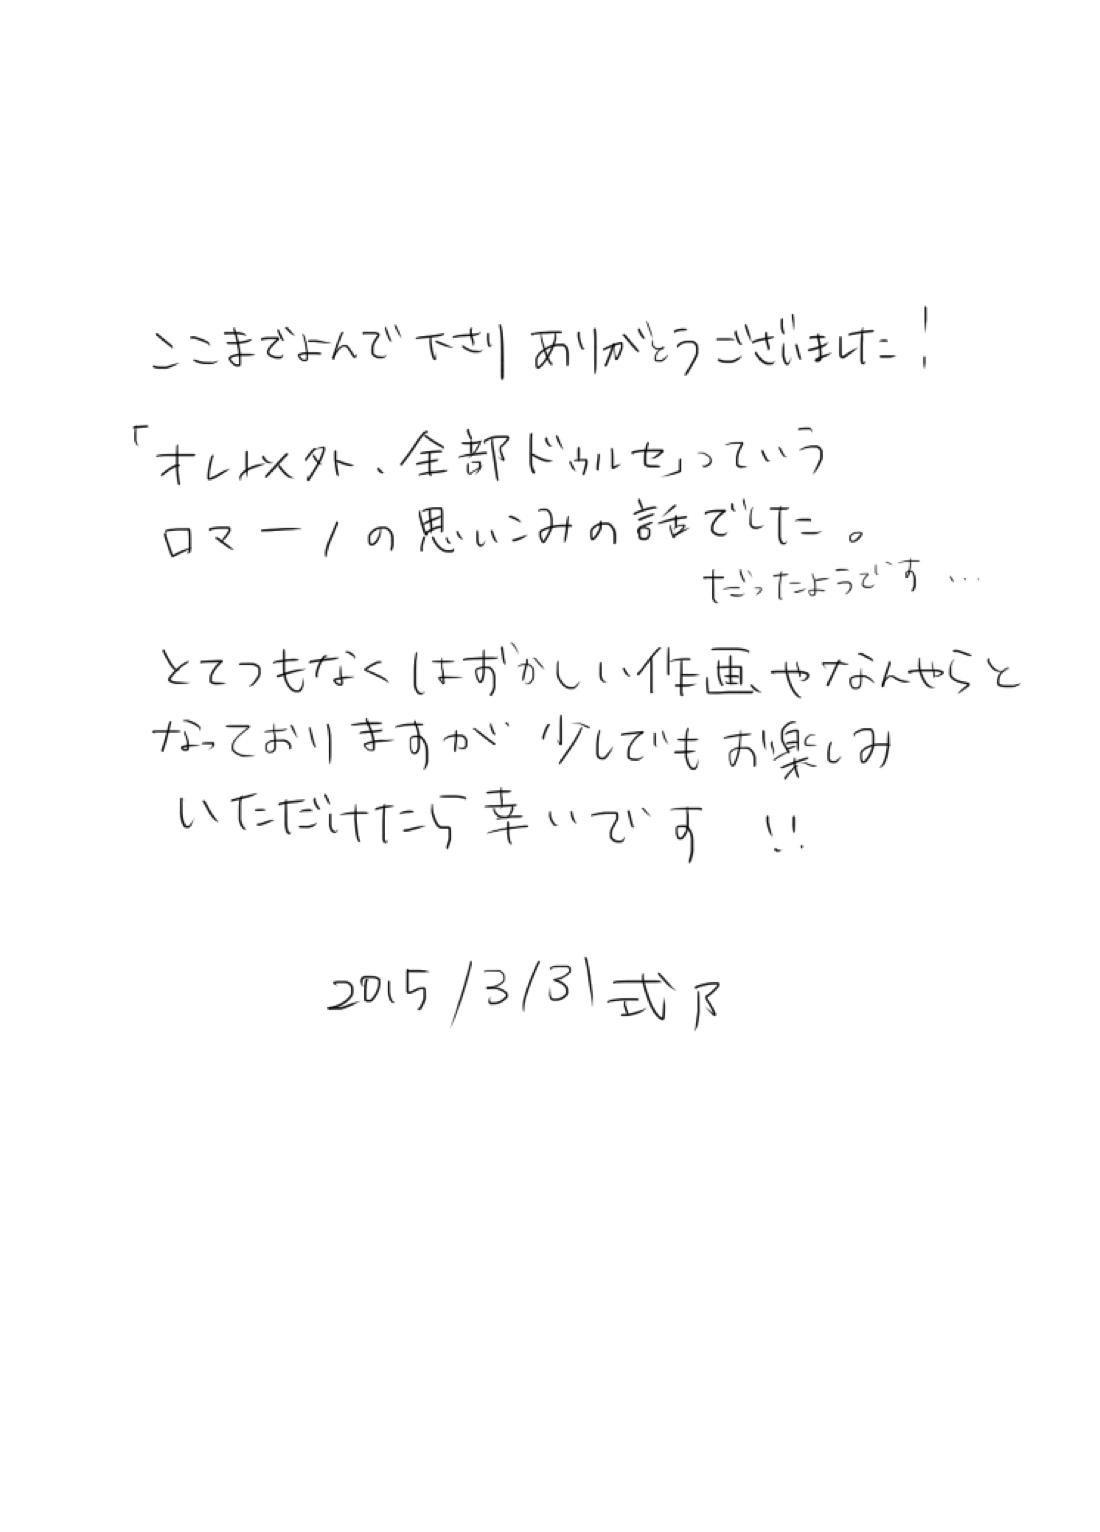 ここまでよんで下さり ありがとうございました!
「オレ以外、全部ドゥルセ」っていう
ロマーノの思いこみの話でした。
だったようです…
とてつもなくはずかしい作画やなんやらと
なっておりますが 少しでもお楽しみ
いただけたら幸いです !!
2015/3/31 式